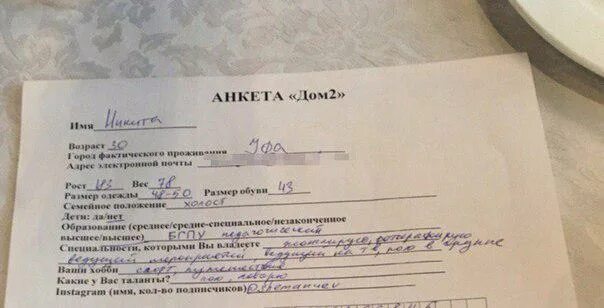 АНКЕТА «Дом2»
Имя Никита
Возраст 30
Город фактического проживания Уфа
Адрес электронной почты
Рост 183 Вес 78
Размер одежды 48-50 Размер обуви 43
Семейное положение холост
Дети: да/нет
Образование (среднее/средне-специальное/незаконченное
высшее/высшее) БГПУ педагогический
Специальности, которыми Вы владеете фотографирую
ведущий мероприятий, ведущий на ТВ, пою в группе
Ваши хобби спорт, путешествия
Какие у Вас таланты? пою, говорю
Instagram (имя, кол-во подписчиков)